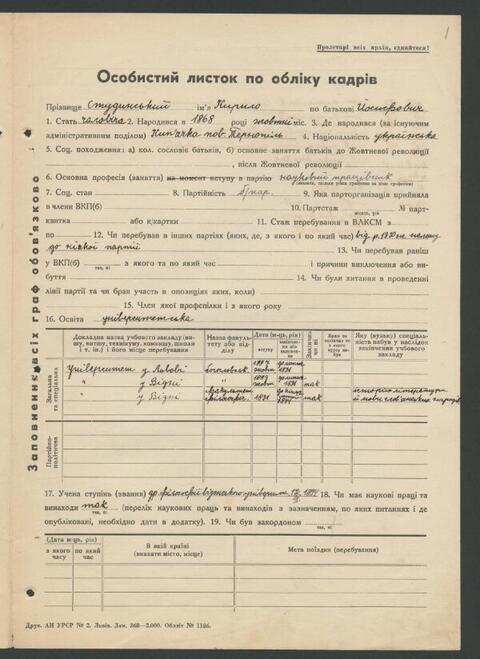 1
Пролетарі всіх країн, єднайтеся!
Особистий листок по обліку кадрів
Прізвище Студинський ім'я Кирило по батькові Йосифович
1. Стать чоловіча 2. Народився в 1868 році жовтні міс. 3. Де народився (за існуючим
адміністративним поділом) Кип'ячка пов. Тернопіль 4. Національність українська
5. Соц. походження: а) кол. сословіє батьків, б) основне заняття батьків до Жовтневої революції
, після Жовтневої революції
6. Основна професія (заняття) на момент вступу в партію науковий працівник
7. Соц. стан 8. Партійність б/пар. 9. Яка парторганізація прийняла
в члени ВКП(б) 10. Партстаж № парт-
місяць, рік
квитка або к/картки 11. Стаж перебування в ВЛКСМ з
по 12. Чи перебував в інших партіях (яких, де, з якого і по який час)
до ніякої партії 13. Чи перебував раніш
у ВКП(б) з якого та по який час і причини виключення або ви-
так, ні
буття 14. Чи були хитання в проведенні
лінії партії та чи брав участь в опозиціях яких, коли)
15. Член якої профспілки і з якого року
16. Освіта університетська
Заповнення всіх граф обов'язково
Докладна назва учбового закладу (ви-
шу, витшу, технікуму, комвишу, школи
і т. ін.) і його місце перебування
Назва факуль-
тету або від-
ділу
Дата (м-ць, рік)
вступу
закінчен-
ня або
залишення
Закінчив
чи ні
Яку (вузьку) спеціаль-
ність набув у наслідок
закінчення учбового
закладу
Загальна
та спеціальна
Університет у Львові богословськ.
" у Відні " так
" у Відні 1891 так
Партійно-
політична
17. Учена ступінь (звання) др філософії віденського університ. 1894 18. Чи має наукові праці та
винаходи так (перелік наукових праць та винаходів з зазначенням, по яких питаннях і де
так, ні
опубліковані, необхідно дати в додатку). 19. Чи був закордоном
так, ні
(Дата м-ць, рік)
з якого
часу
по який
час
В якій країні
(вказати місто, місце)
Мета поїздки (перебування)
Друк. АН УРСР № 2. Львів. Зам. 368—2.000. Обліт № 1186.